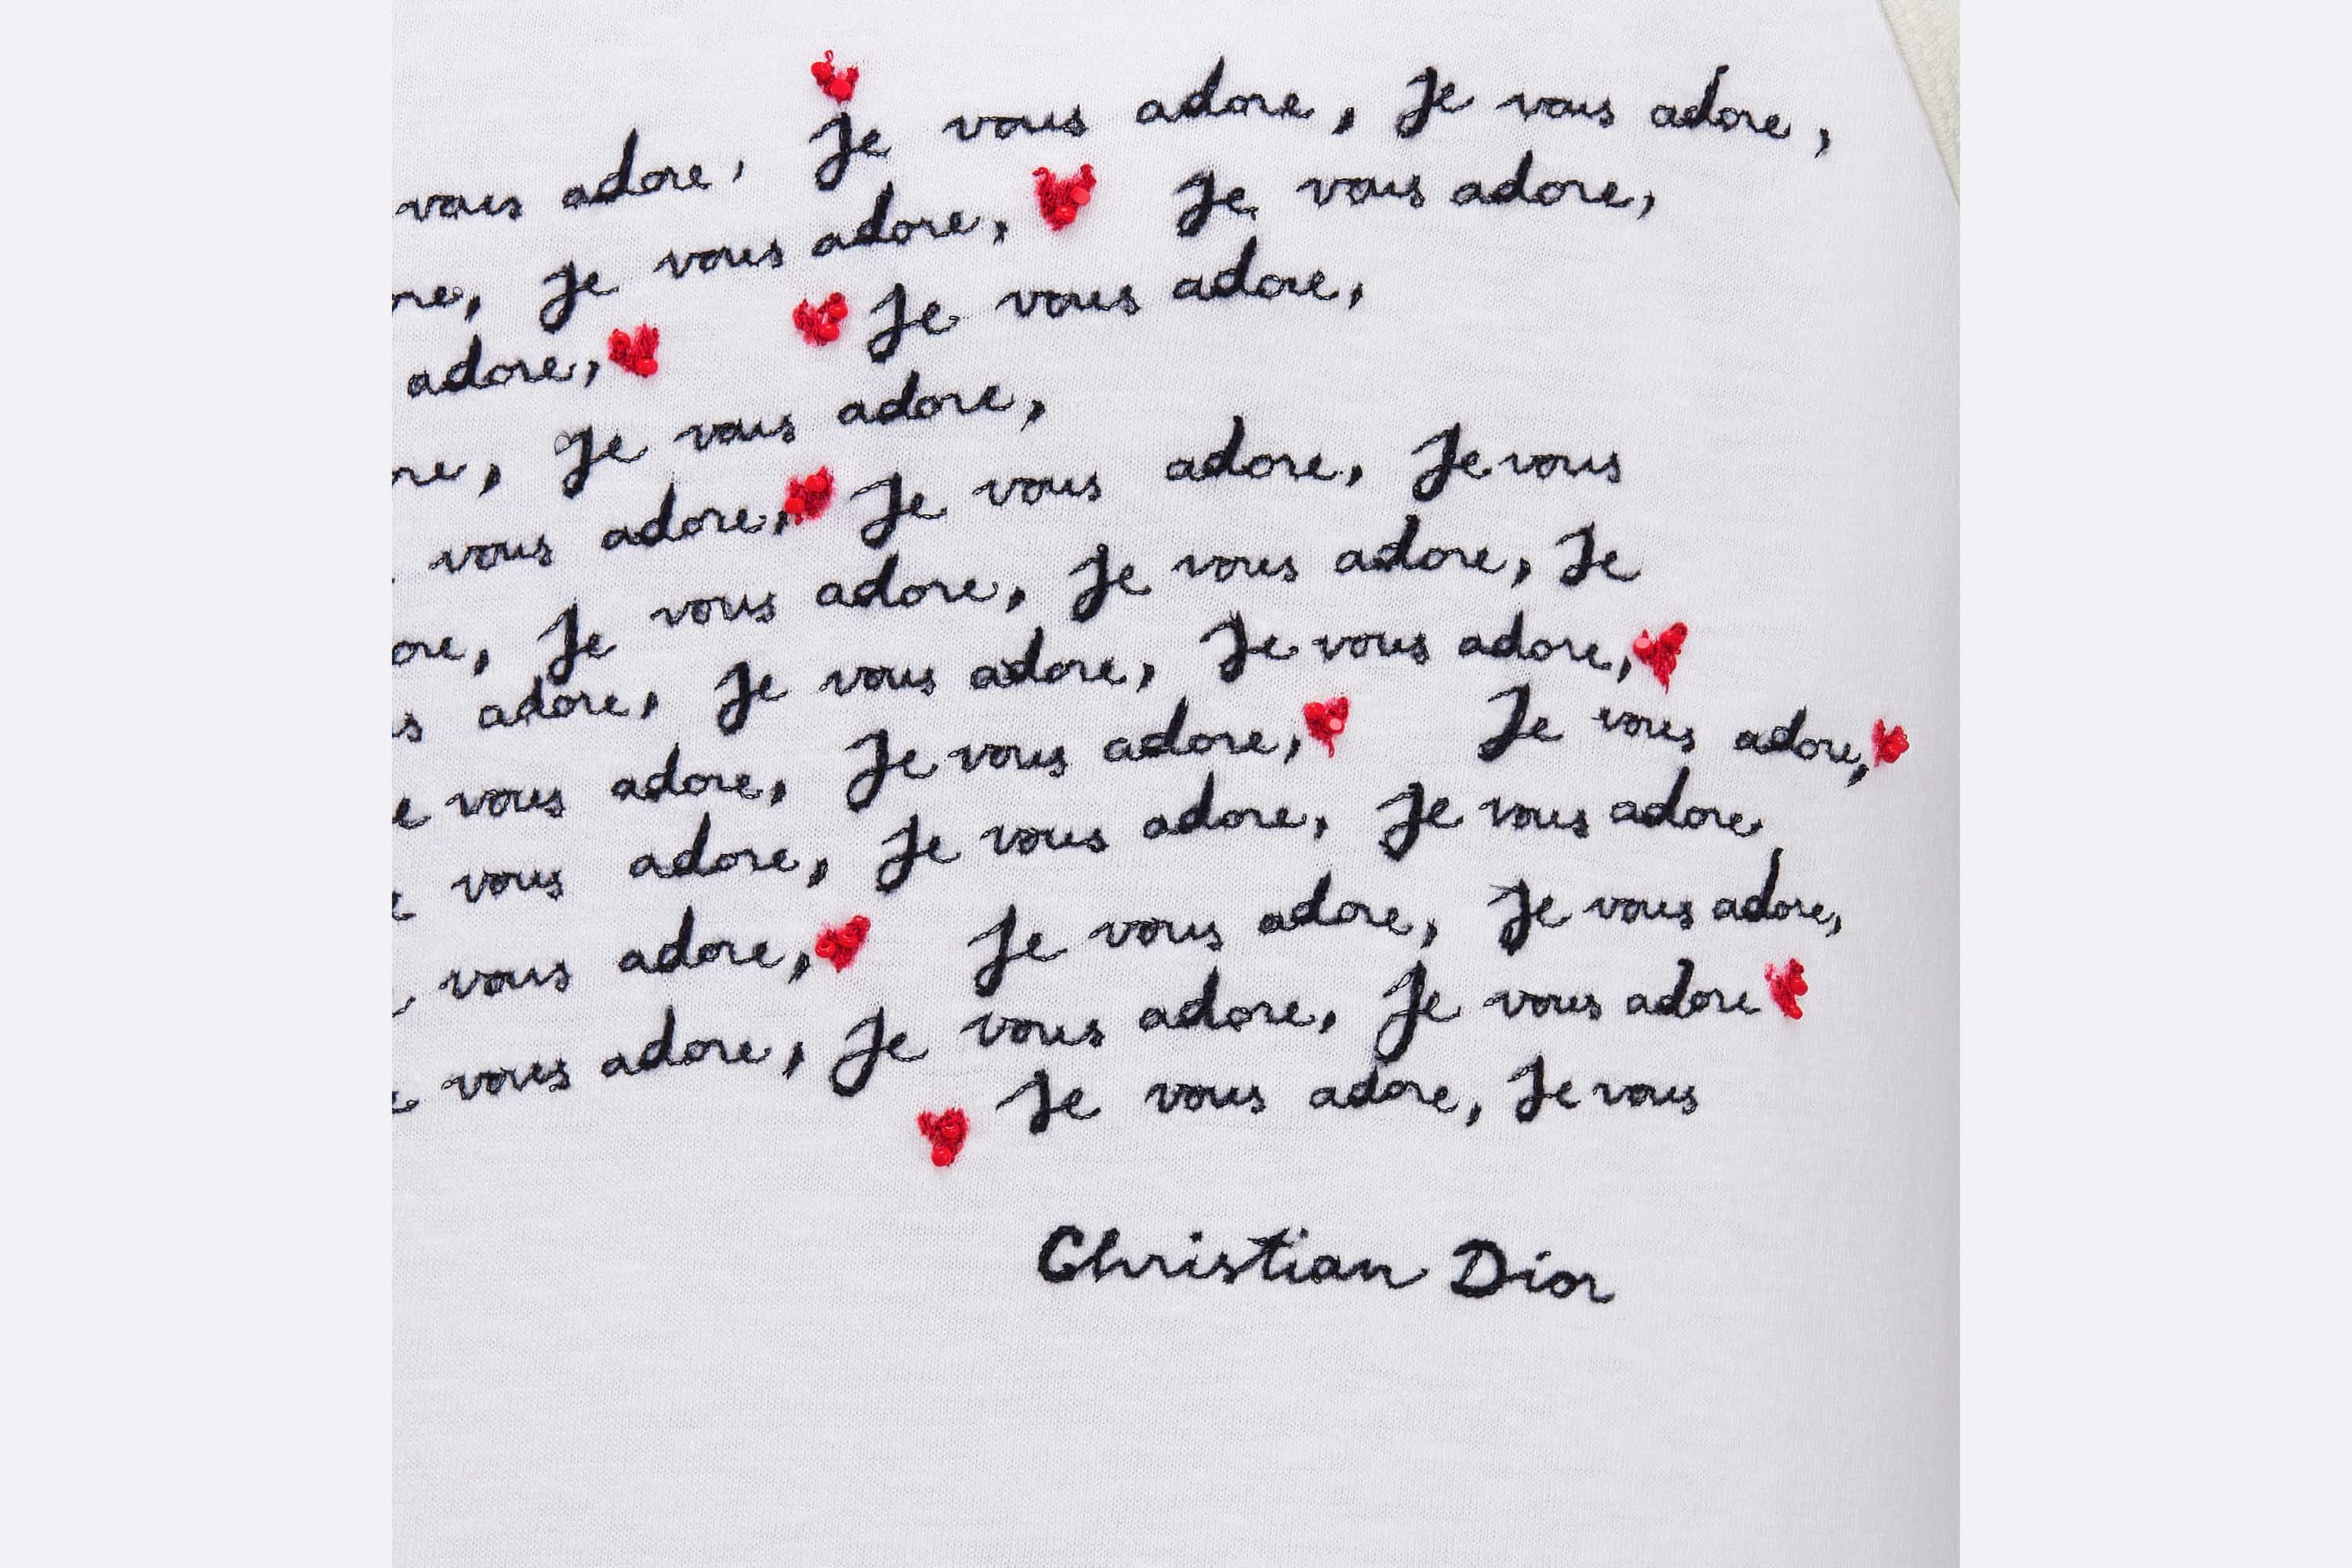 vous adore, Je vous adore, Je vous adore,
re, Je vous adore, Je vous adore,
adore, Je vous adore,
re, Je vous adore,
vous adore, Je vous adore, Je vous
ore, Je vous adore, Je vous adore, Je
s adore, Je vous adore, Je vous adore,
e vous adore, Je vous adore, Je vous adore,
e vous adore, Je vous adore, Je vous adore
vous adore, Je vous adore, Je vous adore,
e vous adore, Je vous adore, Je vous adore
Je vous adore, Je vous
Christian Dior